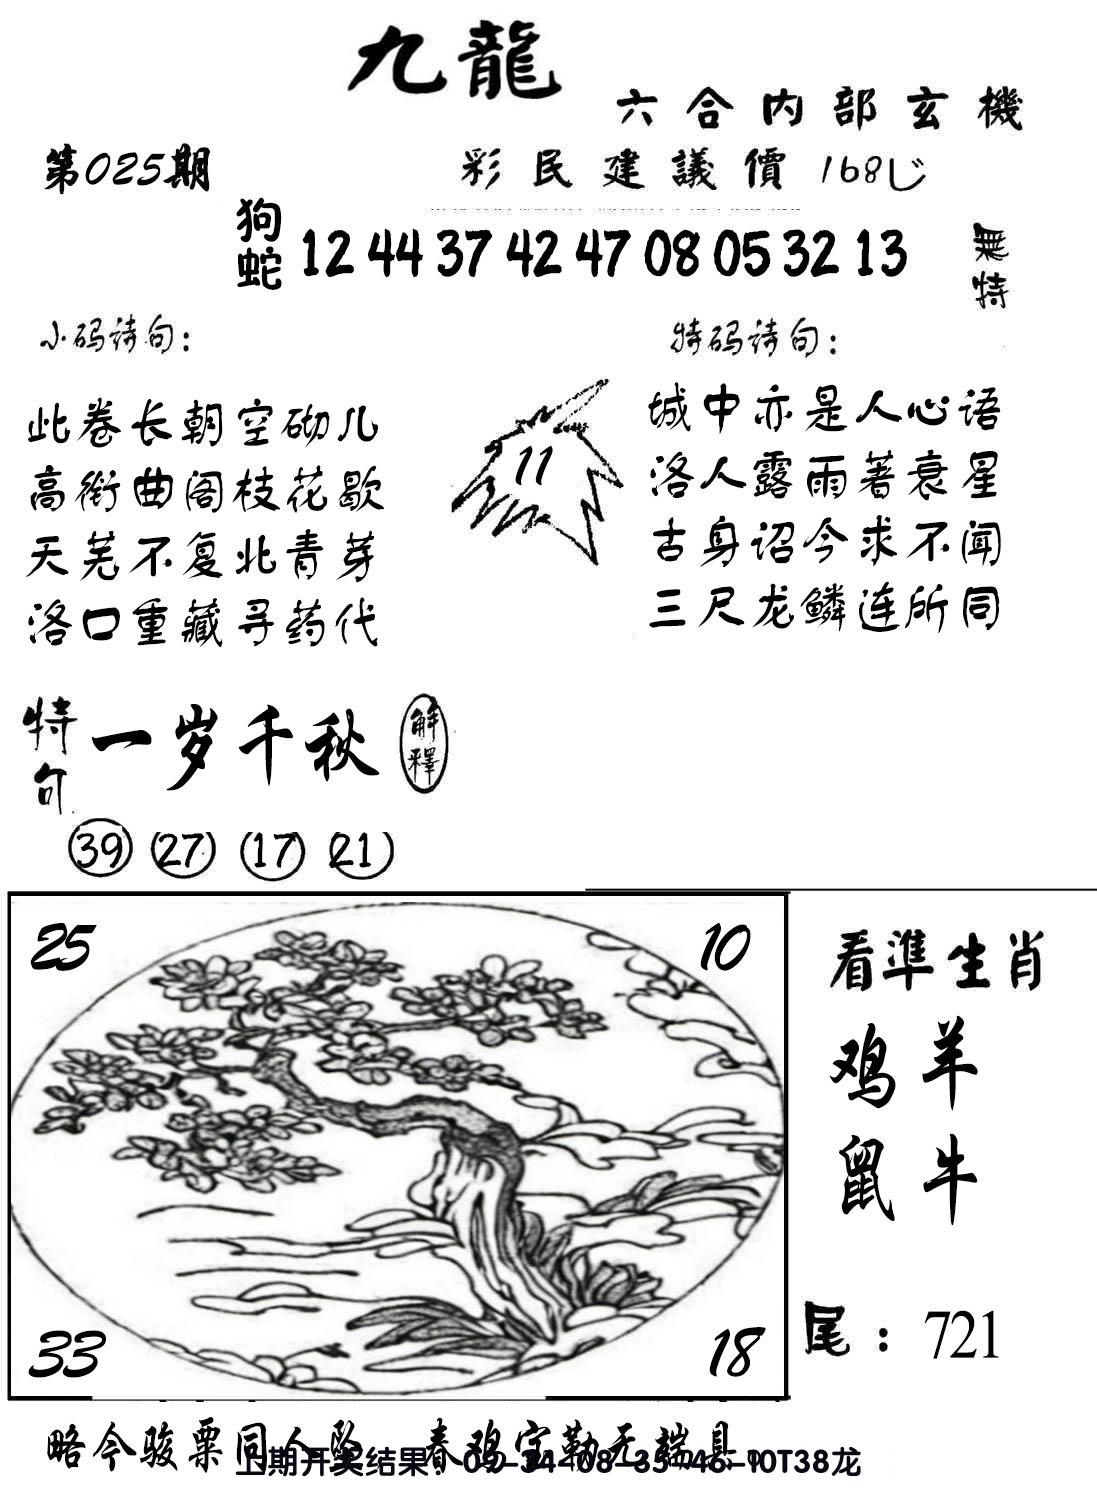 九龍
六合内部玄機
第025期
彩民建議價 168
狗蛇 12 44 37 42 47 08 05 32 13
無特
小码诗句：
特码诗句：
此卷长朝空砌儿
高衔曲阁枝花歇
天芜不复北青芽
洛口重藏寻药代
11
城中亦是人心语
洛人露雨著衰星
古身诏今求不闻
三尺龙鳞连所同
特句 一岁千秋 解釋
39 27 17 21
25 10
33 18
看準生肖
鸡羊
鼠牛
尾：721
略今骏粟同人坠 春鸡宝勒无端具
上期开奖结果：
-10T38龙